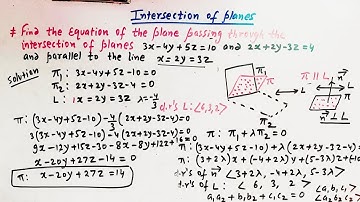 Intersection of planes
# Find the Equation of the plane passing through the
intersection of planes 3x-4y+5z=10 and 2x+2y-3z=4
and parallel to the line x=2y=3z
Solution
π₁: 3x-4y+5z-10=0
π₂: 2x+2y-3z-4=0
L: x=2y=3z λ=-4/3
d.r's L: <6,3,2>
π: (3x-4y+5z-10)-4/3(2x+2y-3z-4)=0
3(3x-4y+5z-10)-4(2x+2y-3z-4)=0
9x-12y+15z-30-8x-8y+12z+16=0
x-20y+27z-14=0
π: x-20y+27z=14
π₁
π₂
π
L
π ∥ L
n⃗ ⊥ L
n⃗
L
π
π: π₁+λπ₂=0
π: (3x-4y+5z-10)+λ(2x+2y-3z-4)=0
π: (3+2λ)x+(-4+2λ)y+(5-3λ)z+(-10
d.r's of n⃗ <3+2λ, -4+2λ, 5-3λ>
d.r's of L: <6, 3, 2> <a₁b₁c₁>
a₁a₂+b₁b₂+c₁c₂=0 <a₂b₂c₂>